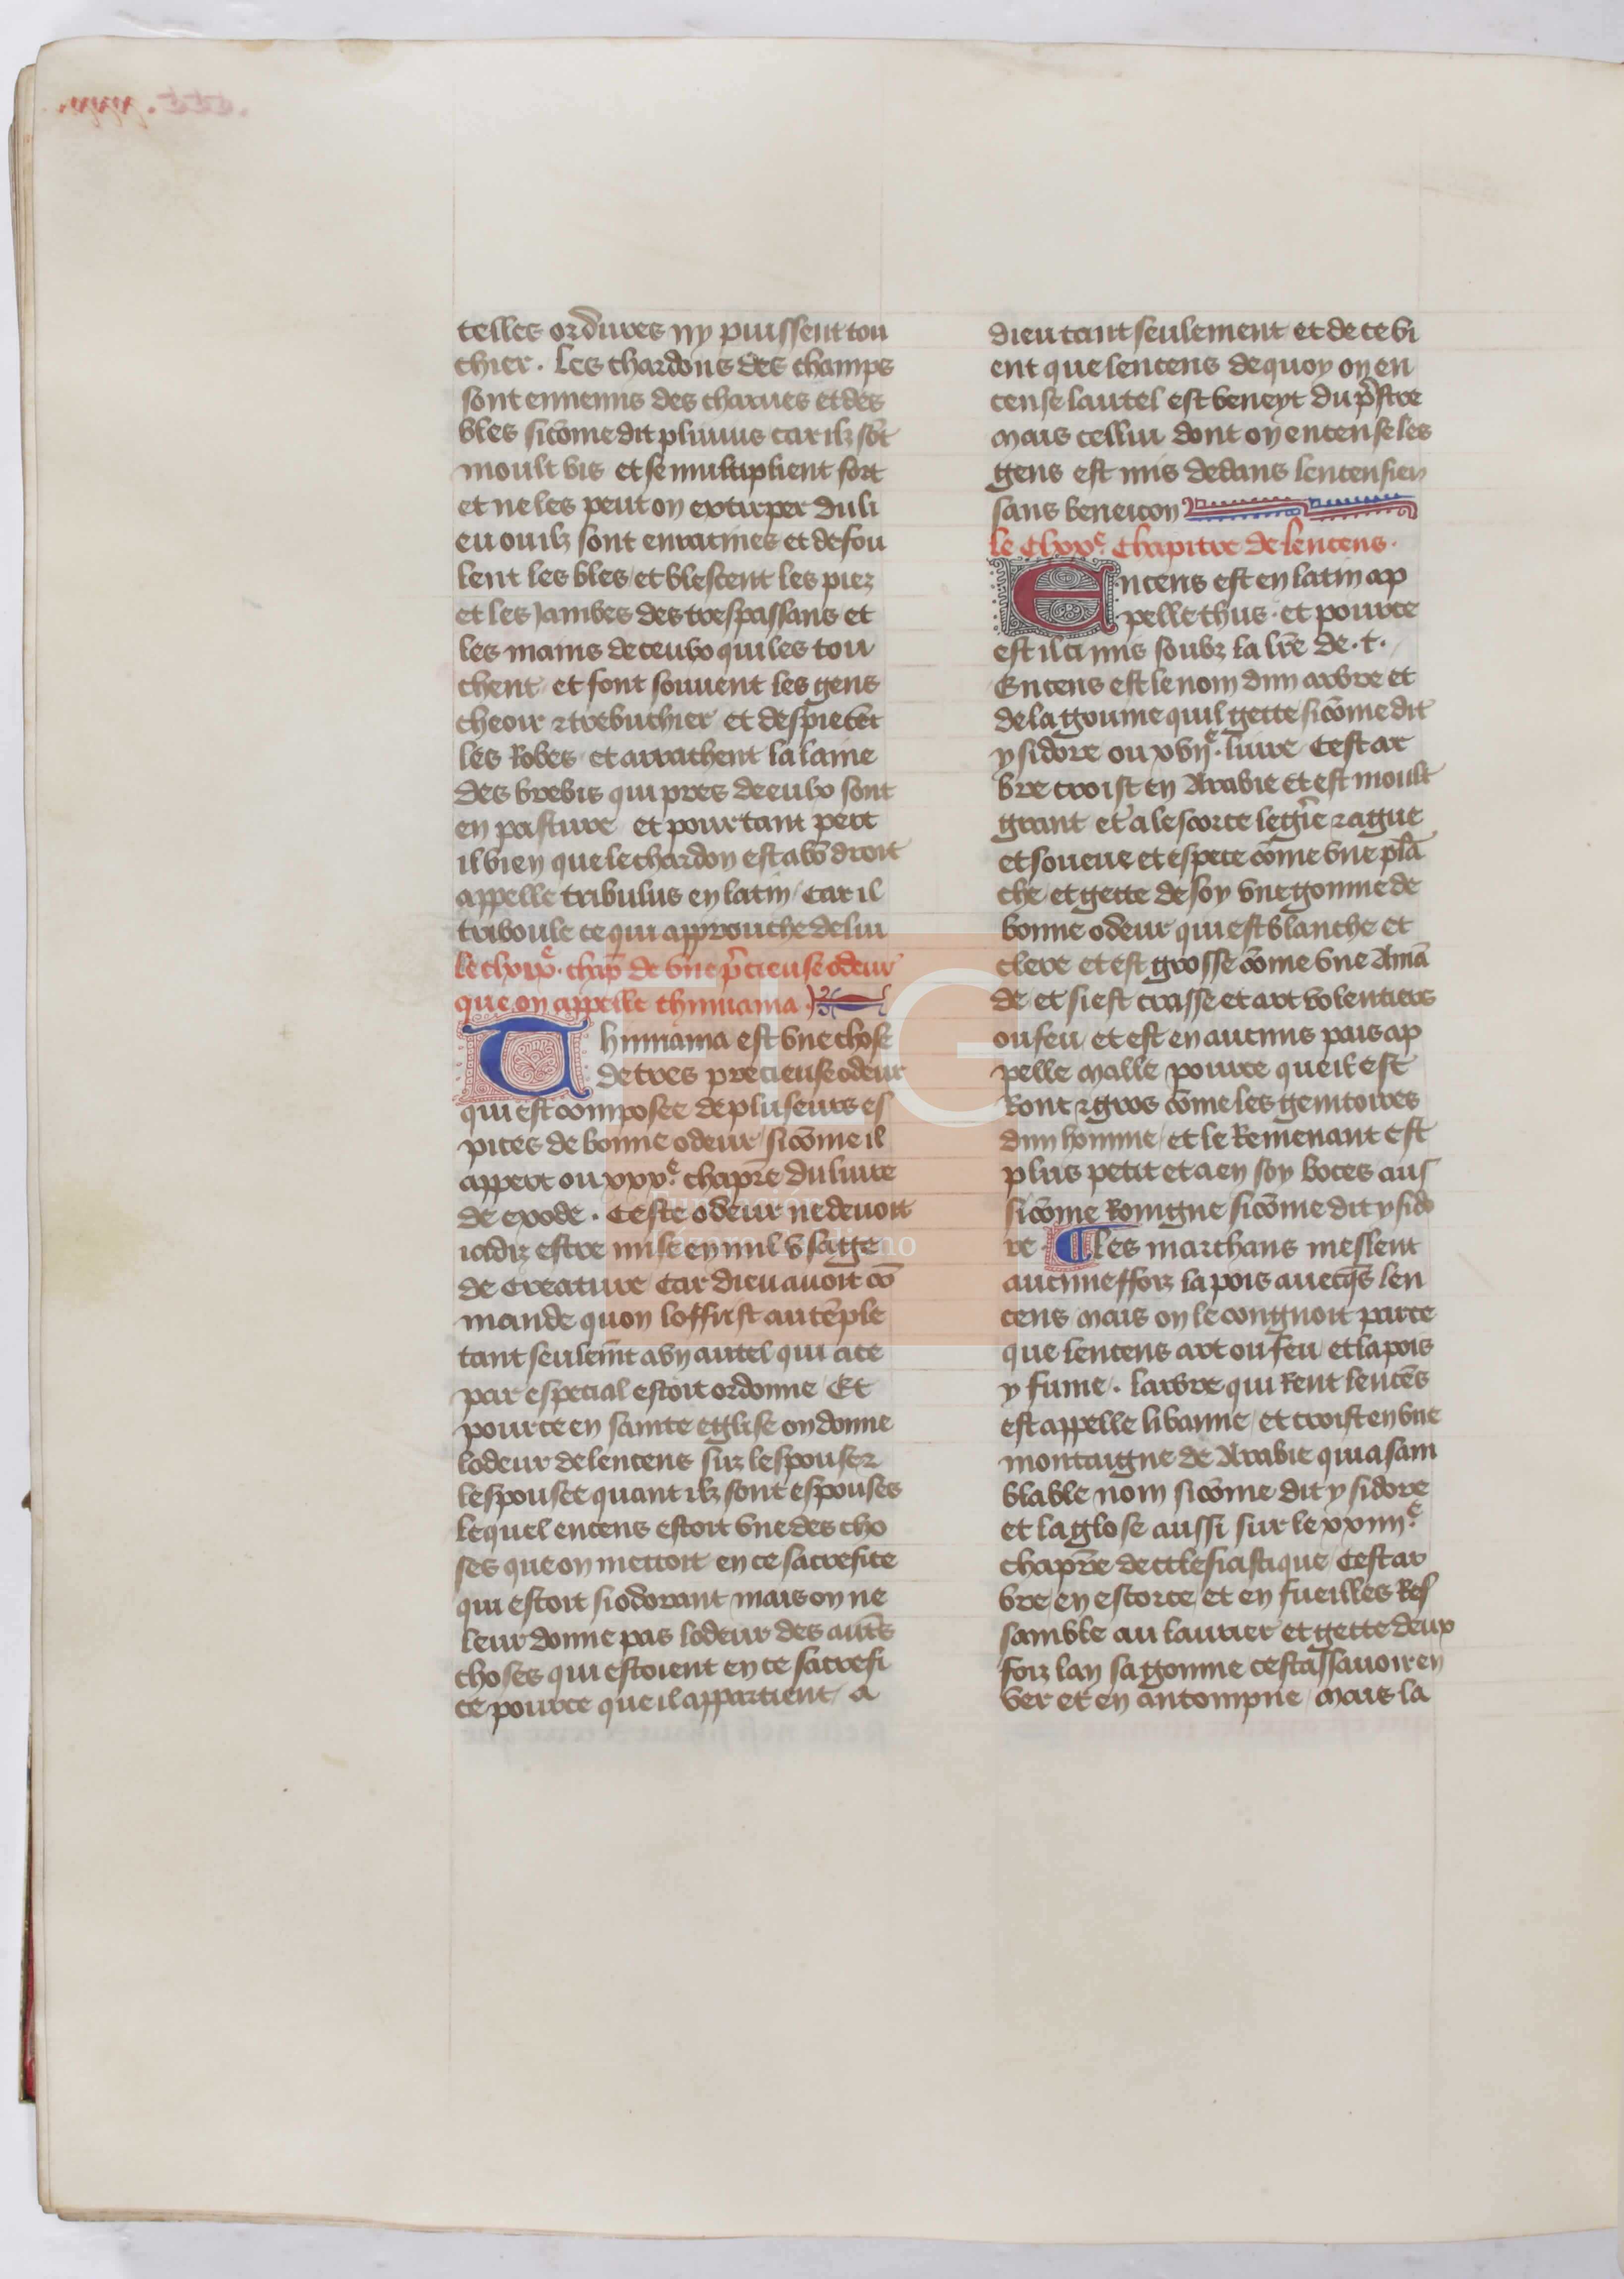 telles ordures ny puissent tou
chier . Les chardons des champs
sont ennemis des charues et des
bles sicōme dit plinius car ilz sōt
moult vis et se multiplient fort
et ne les peut on extirper du li
eu ou ilz sont enracines et defou
lent les bles et blescent les piez
et les Jambes des trespassans et
les mains de ceulx qui les tou
chent et font souuent les gens
cheoir ⁊ trebuchier et despiecēt
les Robes et arrachent la laine
des brebis qui pres de eulx sont
en pasture et pourtant pert
il bien que le chardon est a bō droit
appelle tribulus en latin car il
triboule ce qui approuche de lui
le clxixᵉ. chap̄ de vne p̄cieuse odeur
que on appelle thimiama .
Thimiama est vne chose
de tres precieuse odeur
qui est composee de pluseurs es
pices de bonne odeur sicōme il
appert ou xxxᵉ. chapr̄e du liure
de exode . Ceste odeur ne deuoit
iadiz estre mise en nul vsage
de creature Car dieu auoit cō
mande quon loffrist au tēple
tant seulem̄t a vn autel qui a ce
par especial estoit ordonne Et
pource en saincte eglise on donne
lodeur de lencens sur lespouse ⁊
lespousee quant ilz sont espouses
lequel encens estoit vne des cho
ses que on mettoit en ce sacrefice
qui estoit si odorant mais on ne
leur donne pas lodeur des autēs
choses qui estoient en ce sacrefi
ce pource que il appartient a
dieu tant seulement et de ce vi
ent que lencens de quoy on en
cense lautel est beneyt du p̄stre
mais cellui dont on encense les
gens est mis dedans lencensier
sans beneicon
le Clxxᵉ. Chapitre de lencens .
Encens est en latin ap
pelle thus . et pource
est il ci mis soubz la lr̄e de . t .
Encens est le nom dun arbre et
de la goume quil gette sicōme dit
ysidore ou xvijᵉ. liure Cest ar
bre croist en Arabie Et est moult
grant et a lescorce legiē ⁊ ague
et soueue et espece cōme vne plā
che et gette de soy vne gomme de
bonne odeur qui est blanche et
clere et est grosse cōme vne Amā
de et si est crasse et art volentiers
ou feu et est en aucuns pais ap
pelle malle pource que il est
Ront ⁊ gros cōme les genitoires
dun homme et le Remenant est
plus petit et a en soy boces aus
sicōme Rongne sicōme dit ysido
re . Les marchans meslent
aucuneffoiz la pois auecq̄s len
cens mais on le congnoit parce
que lencens art ou feu et la pois
y fume . Larbre qui Rent lencēs
est appelle libanne et croist en vne
montaigne de Arabie qui a sam
blable nom sicōme dit ysidore
et la glose aussi sur le xxiiijᵉ
chapr̄e de ecclesiastique Cest ar
bre en escorce et en fueilles Res
samble au laurier et gette deux
foiz lan sa gomme cest assauoir en
ver et en antompne mais la
FLG
Fundación
Lázaro Galdiano